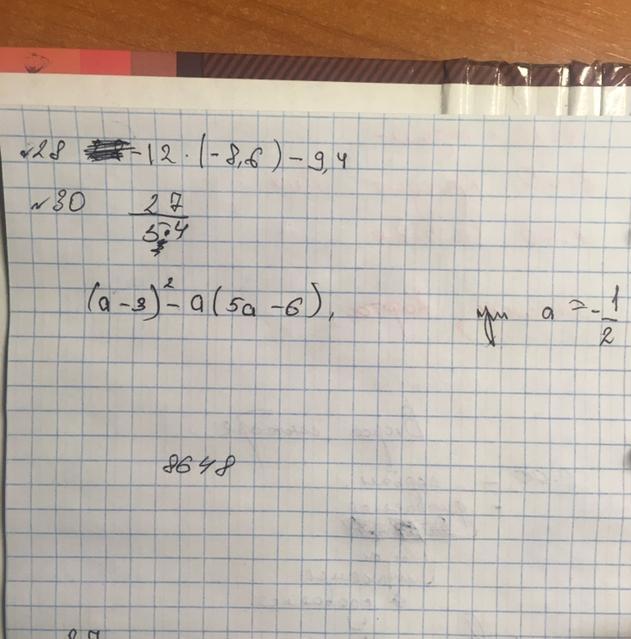 №28 -12 · (-8,6) - 9,4
№30 27/5·4
(a-3)² - a(5a-6), при a = -1/2
8648